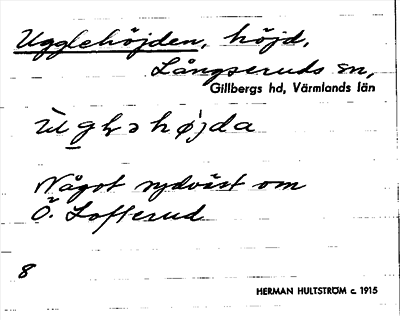 Ugglehöjden, höjd,
Långseruds sn,
Gillbergs hd, Värmlands län
Något sydväst om
Ö. Lofterud
8
HERMAN HULTSTRÖM c. 1915